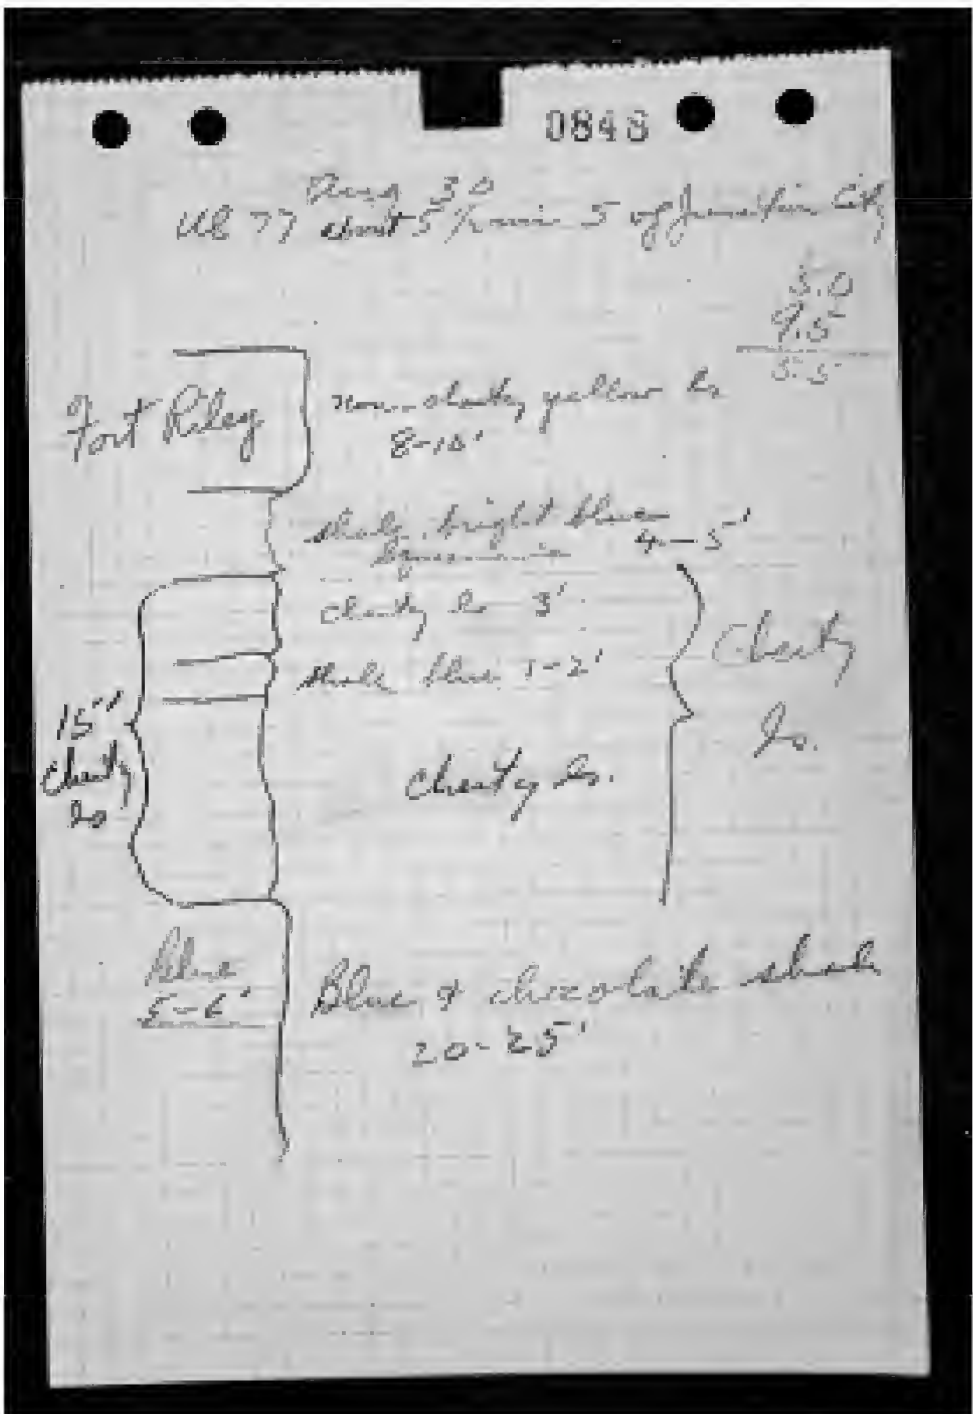 0848
Aug 30
US 77 about 5 1/2 mi S of Junction City
5.0
9.5
5.5
Fort Riley
non-cherty yellow ls
8-10'
shale, bright blue
4-5'
cherty ls 3'
shale blue 1-2'
15'
Cherty
ls
cherty ls.
Cherty
ls.
blue
5-6'
Blue & chocolate shale
20-25'